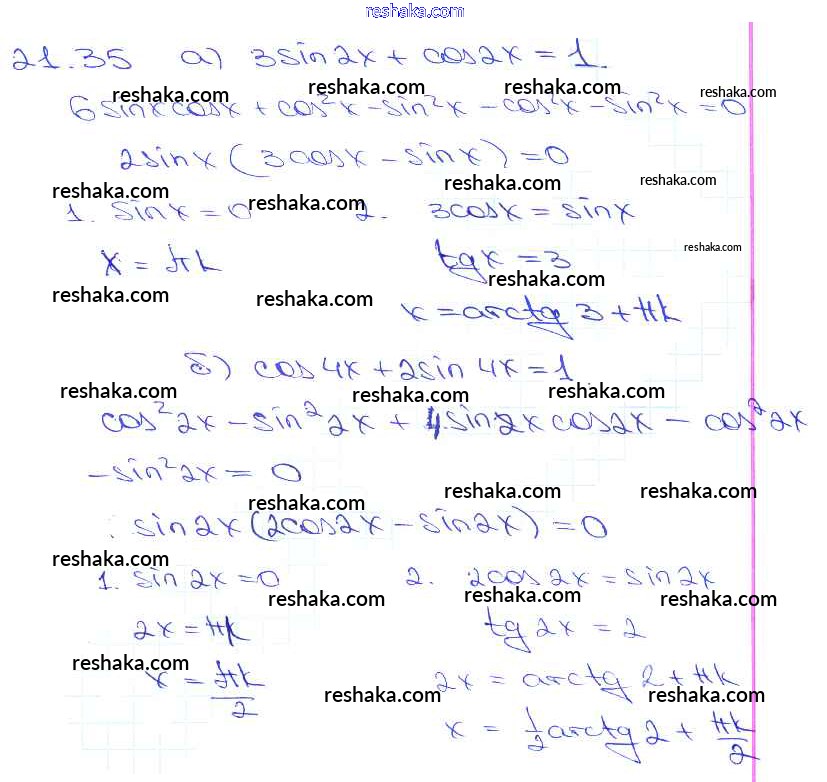 reshaka.com
21.35 а) 3sin2x + cos2x = 1.
reshaka.com reshaka.com reshaka.com reshaka.com
6sinxcosx + cos²x - sin²x - cos²x - sin²x = 0
2sinx(3cosx - sinx) = 0
reshaka.com reshaka.com reshaka.com reshaka.com
1. sinx = 0 2. 3cosx = sinx
x = πk tgx = 3
reshaka.com reshaka.com reshaka.com reshaka.com
x = arctg 3 + πk
б) cos4x + 2sin4x = 1
reshaka.com reshaka.com reshaka.com
cos²2x - sin²2x + 4sin2xcos2x - cos²2x
- sin²2x = 0
reshaka.com reshaka.com reshaka.com
sin2x(2cos2x - sin2x) = 0
reshaka.com
1. sin2x = 0 2. 2cos2x = sin2x
reshaka.com reshaka.com reshaka.com
2x = πk tg2x = 2
reshaka.com
x = πk/2 2x = arctg2 + πk
reshaka.com reshaka.com
x = 1/2 arctg2 + πk/2